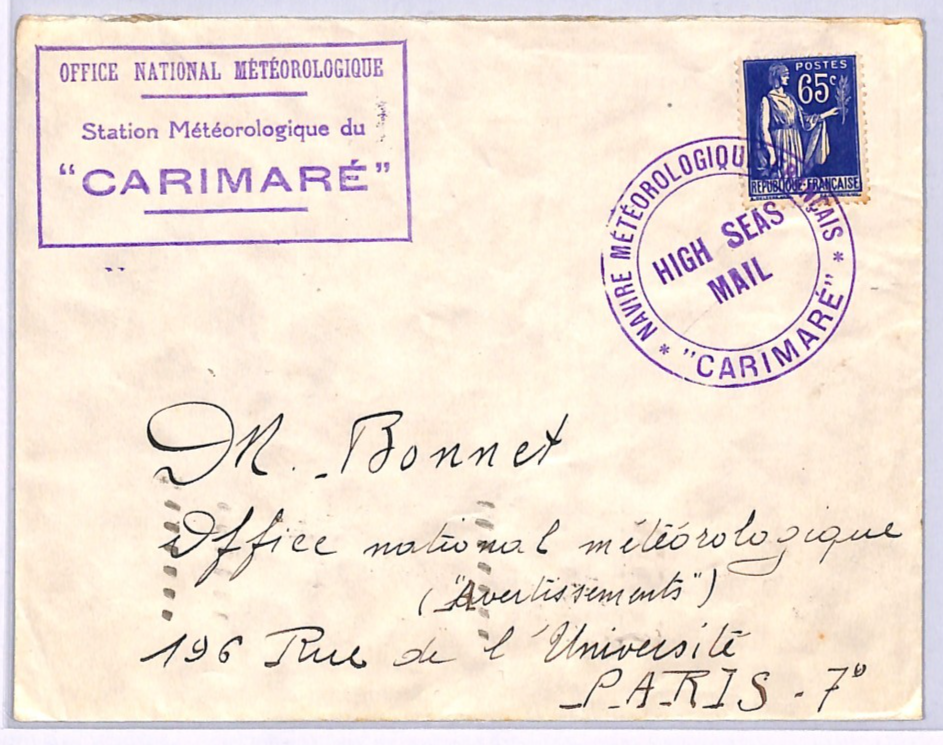 OFFICE NATIONAL MÉTÉOROLOGIQUE
Station Météorologique du
“CARIMARÉ”
POSTES
65c
REPUBLIQUE FRANÇAISE
NAVIRE MÉTÉOROLOGIQU ÇAIS
HIGH SEAS
MAIL
* "CARIMARÉ" *
M. Bonnet
Office national météorologique
("Avertissements")
196 Rue de l'Université
PARIS - 7e